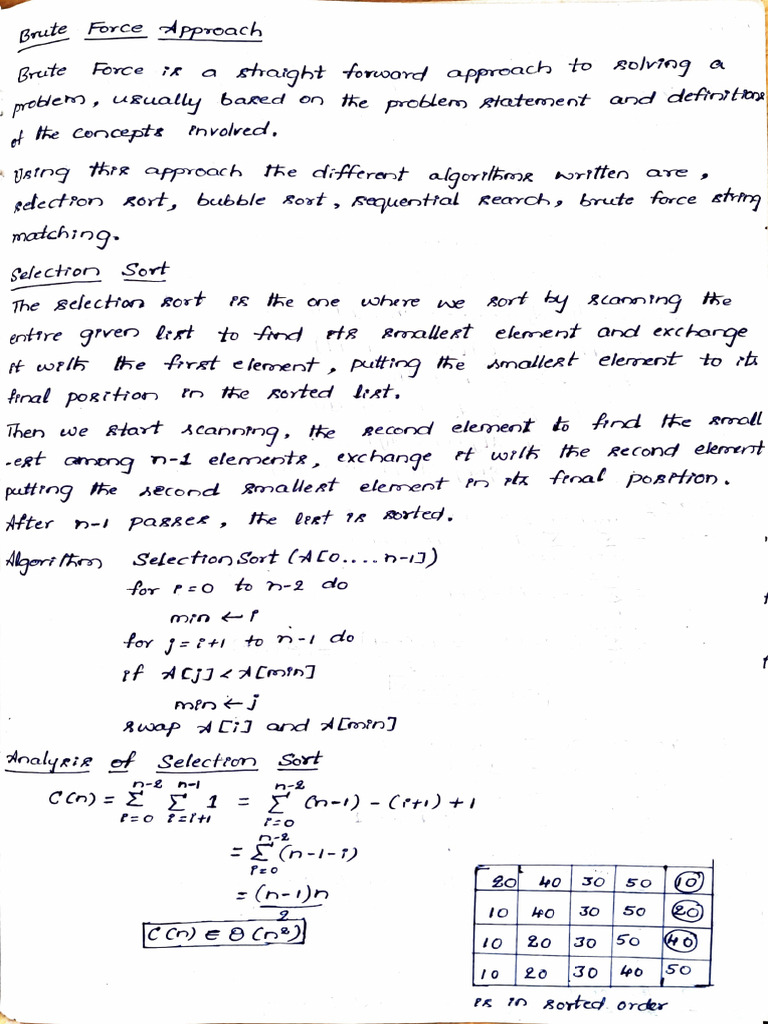 Brute Force Approach
Brute Force is a straight forward approach to solving a
problem, usually based on the problem statement and definitions
of the concepts involved.
Using this approach the different algorithms written are,
selection sort, bubble sort, sequential search, brute force string
matching.
Selection Sort
The selection sort is the one where we sort by scanning the
entire given list to find its smallest element and exchange
it with the first element, putting the smallest element to its
final position in the sorted list.
Then we start scanning, the second element to find the small
-est among n-1 elements, exchange it with the second element
putting the second smallest element in its final position.
After n-1 passes, the list is sorted.
Algorithm SelectionSort (A[0....n-1])
for i=0 to n-2 do
min ← i
for j=i+1 to n-1 do
if A[j]<A[min]
min ← j
swap A[i] and A[min]
Analysis of Selection Sort
C(n) = Σ_{i=0}^{n-2} Σ_{i=i+1}^{n-1} 1 = Σ_{i=0}^{n-2} (n-1) - (i+1) + 1
= Σ_{i=0}^{n-2} (n-1-i)
= (n-1)n / 2
C(n) ∈ Θ(n²)
20 40 30 50 10
10 40 30 50 20
10 20 30 50 40
10 20 30 40 50
is in sorted order